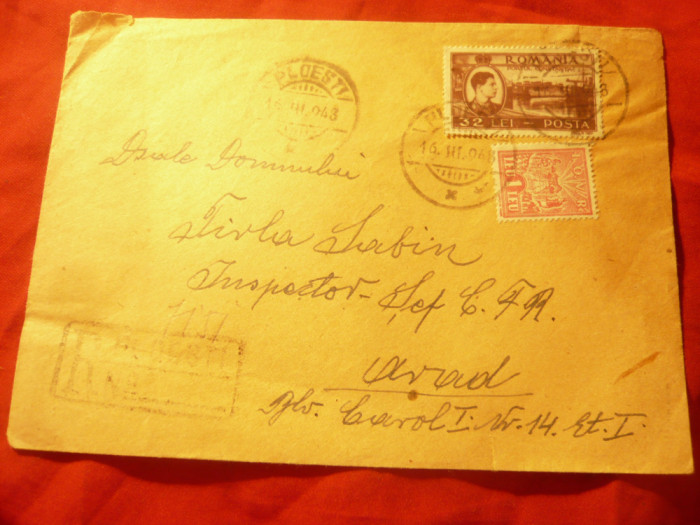 ROMANIA
32 LEI - POSTA
PLOESTI
16. III. 948
16. III. 948
I.O.V.R.
1 LEU
Dsale Domnului
Tirla Sabin
Inspector-Șef C.F.R.
Arad
Blv. Carol I. Nr. 14. Et. I.